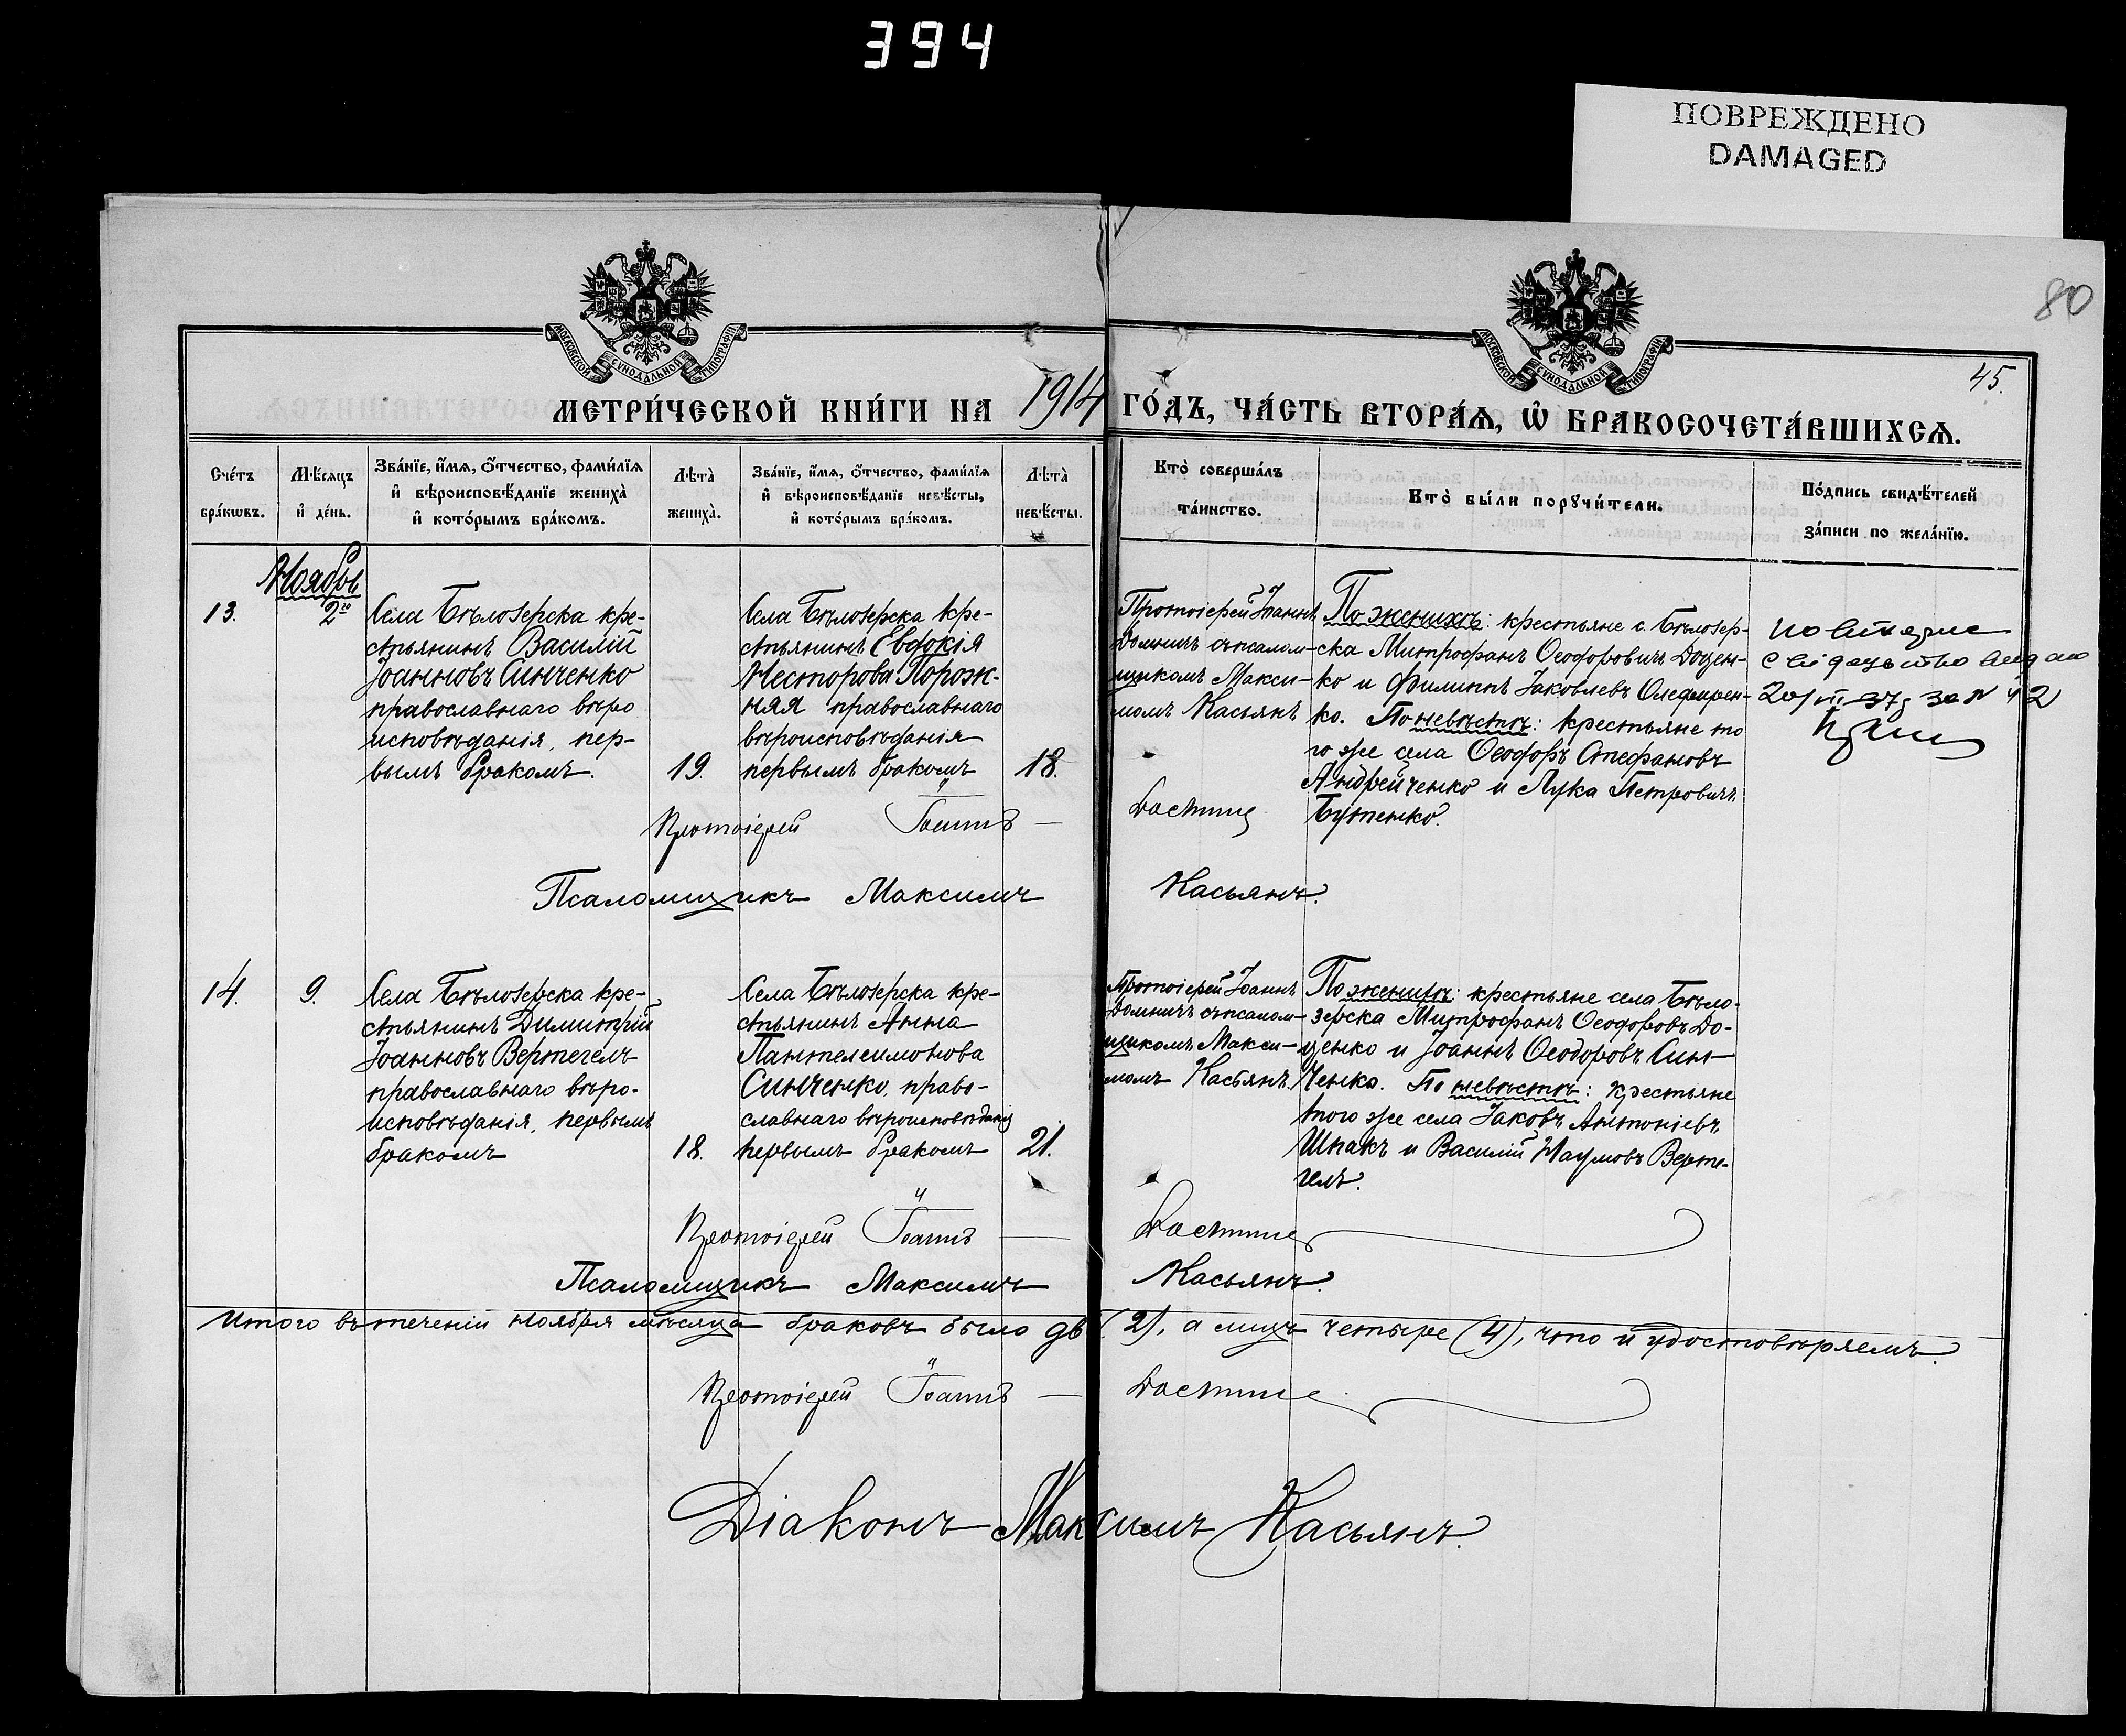 394
ПОВРЕЖДЕНО
DAMAGED
80
45.
МОСКОВСКОЙ СѴНОДАЛЬНОЙ ТИПОГРАФІИ
МОСКОВСКОЙ СѴНОДАЛЬНОЙ ТИПОГРАФІИ
МЕТРИ́ЧЕСКОЙ КНИ́ГИ НА 1914 ГО́ДЪ, ЧА́СТЬ ВТОРА́Ѧ, Ѡ҆ БРАКОСОЧЕТА́ВШИХСѦ.
Сче́тъ
бра́кѡвъ.
Мѣ́сѧцъ
и҆ де́нь.
Зва́нїе, и҆́мѧ, ѻ҆́тчество, фами́лїѧ
и҆ вѣроисповѣ́данїе жениха̀
и҆ кото́рымъ бра́комъ.
Лѣта̀
жениха̀.
Зва́нїе, и҆́мѧ, ѻ҆́тчество, фами́лїѧ
и҆ вѣроисповѣ́данїе невѣ́сты,
и҆ кото́рымъ бра́комъ.
Лѣта̀
невѣ́сты.
Кто̀ соверша́лъ
та́инство.
Кто̀ бы́ли порꙋчи́тели.
По́дпись свидѣ́телей
за́писи по жела́нїю.
Ноябрь
13.
2го
Села Бѣлозерска кре-
стьянинъ Василій
Іоанновъ Синченко
православнаго вѣро
исповѣданія, пер-
вымъ бракомъ.
19.
Села Бѣлозерска кре-
стьянинъ Евдокія
Несторова Порож-
няя православнаго
вѣроисповѣданія
первымъ бракомъ
18.
Протоіерей Іоаннъ
Домничъ съ псалом-
щикомъ Макси-
момъ Касьянъ
По женихѣ: крестьяне с. Бѣлозер-
ска Митрофанъ Ѳеодоровичъ Доцен-
ко и Филиппъ Іаковлевъ Олефирен-
ко. По невѣстѣ: крестьяне то
го же села Ѳеодоръ Стефановъ
Андрейченко и Лука Петровичъ
Бутенко.
20/VII-37 за № 42
Протоіерей Іоаннъ
Псаломщикъ Максимъ Касьянъ.
14.
9.
Села Бѣлозерска кре-
стьянинъ Димитрій
Іоанновъ Вертегелъ
православнаго вѣро-
исповѣданія, первымъ
бракомъ
18.
Села Бѣлозерска кре-
стьянинъ Анна
Пантелеимонова
Синченко, право-
славнаго вѣроисповѣданія
первымъ бракомъ
21.
Протоіерей Іоаннъ
Домничъ съ псалом-
щикомъ Макси-
момъ Касьянъ.
По женихѣ: крестьяне села Бѣло-
зерска Митрофанъ Ѳеодоровъ До-
ценко и Іоаннъ Ѳеодоровъ Син-
ченко. По невѣстѣ: крестьяне
того же села Іаковъ Антоніевъ
Шпакъ и Василій Наумовъ Верте-
гелъ.
Протоіерей Іоаннъ
Псаломщикъ Максимъ Касьянъ.
Итого въ теченіи ноября мѣсяца браковъ было дв (2), а лицъ четыре (4), что и удостовѣряемъ.
Протоіерей Іоаннъ
Діаконъ Максимъ Касьянъ.